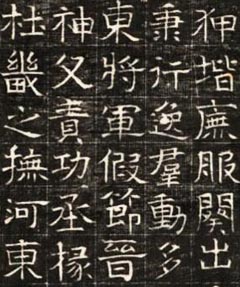 狎堦服出
秉行逸羣動多
東將軍假節晉
神父責功丞掾
杜畿之撫河東